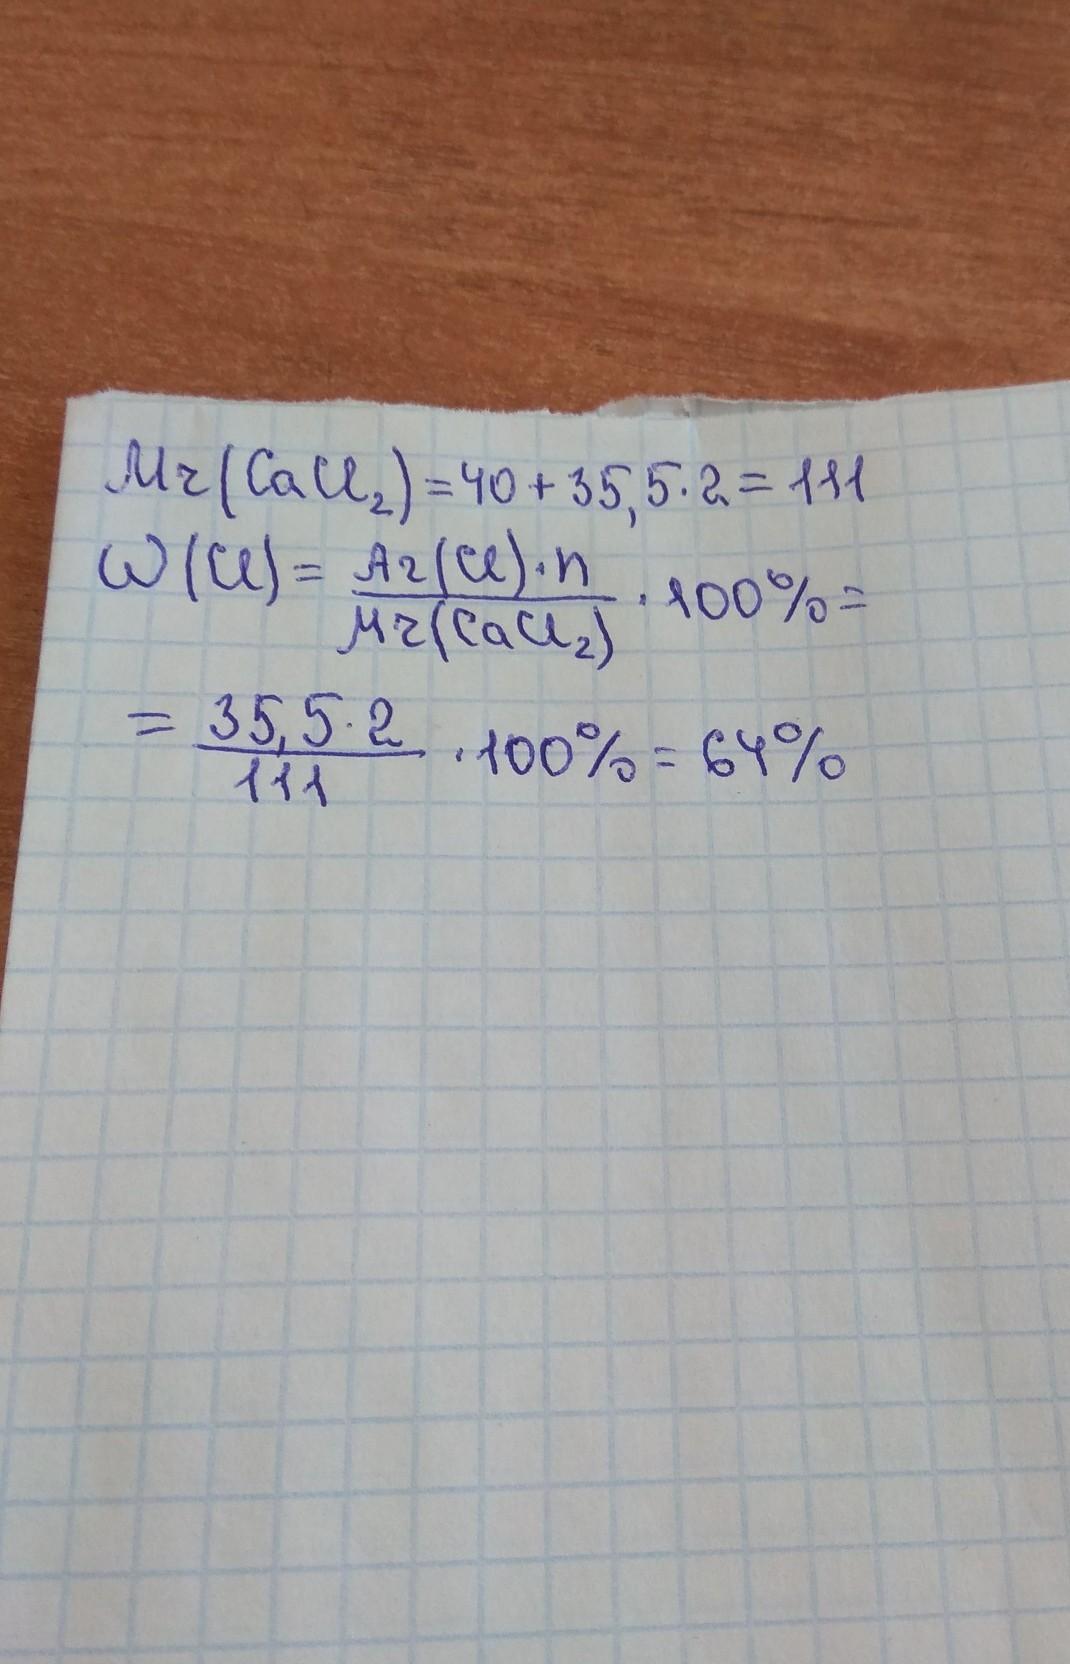 Mr(CaCl₂)=40+35,5·2=111
ω(Cl)= Ar(Cl)·n / Mr(CaCl₂) · 100%=
= 35,5·2 / 111 · 100%= 64%